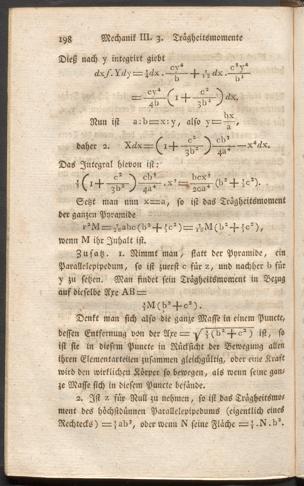 198 Mechanik III. 3. Trägheitsmomente
Dieß nach y integrirt giebt
dx∫.Ydy = ¼dx. cy⁴/b + 1/12 dx. c³y⁴/b³
= cy⁴/4b (1 + c²/3b²) dx,
Nun ist a:b=x:y, also y = bx/a,
daher 2. Xdx = (1 + c²/3b²) cb³/4a⁴ — x⁴dx.
Das Integral hievon ist:
(1 + c²/3b²) cb³/4a⁴ . x⁵ = bcx⁵/20a⁴ (b² + ⅓c²).
Setzt man nun x=a, so ist das Trägheitsmoment
der ganzen Pyramide
r²M = 1/20 abc (b² + ⅓c²) = 3/20 M (b² + ⅓c²),
wenn M ihr Inhalt ist.
Zusatz. 1. Nimmt man, statt der Pyramide, ein
Parallelepipedum, so ist zuerst c für z, und nachher b für
y zu setzen. Man findet sein Trägheitsmoment in Bezug
auf dieselbe Axe AB =
⅓M (b² + ¼c²).
Denkt man sich also die ganze Masse in einem Puncte,
dessen Entfernung von der Axe = ist, so
ist sie in diesem Puncte in Rücksicht der Bewegung allen
ihren Elementartheilen zusammen gleichgültig, oder eine Kraft
wird den wirklichen Körper so bewegen, als wenn seine gan-
ze Masse sich in diesem Puncte befände.
2. Ist z für Null zu nehmen, so ist das Trägheitsmo-
ment des höchstdünnen Parallelepipedums (eigentlich eines
Rechtecks) = ⅓ab³, oder wenn N seine Fläche = ⅓.N.b².